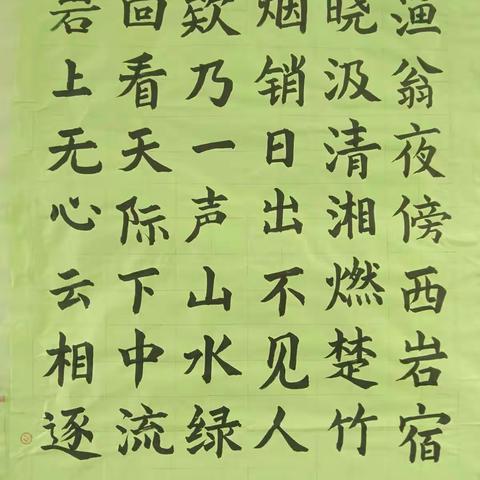 渔翁夜傍西岩宿
晓汲清湘燃楚竹
烟销日出不见人
欸乃一声山水绿
回看天际下中流
岩上无心云相逐